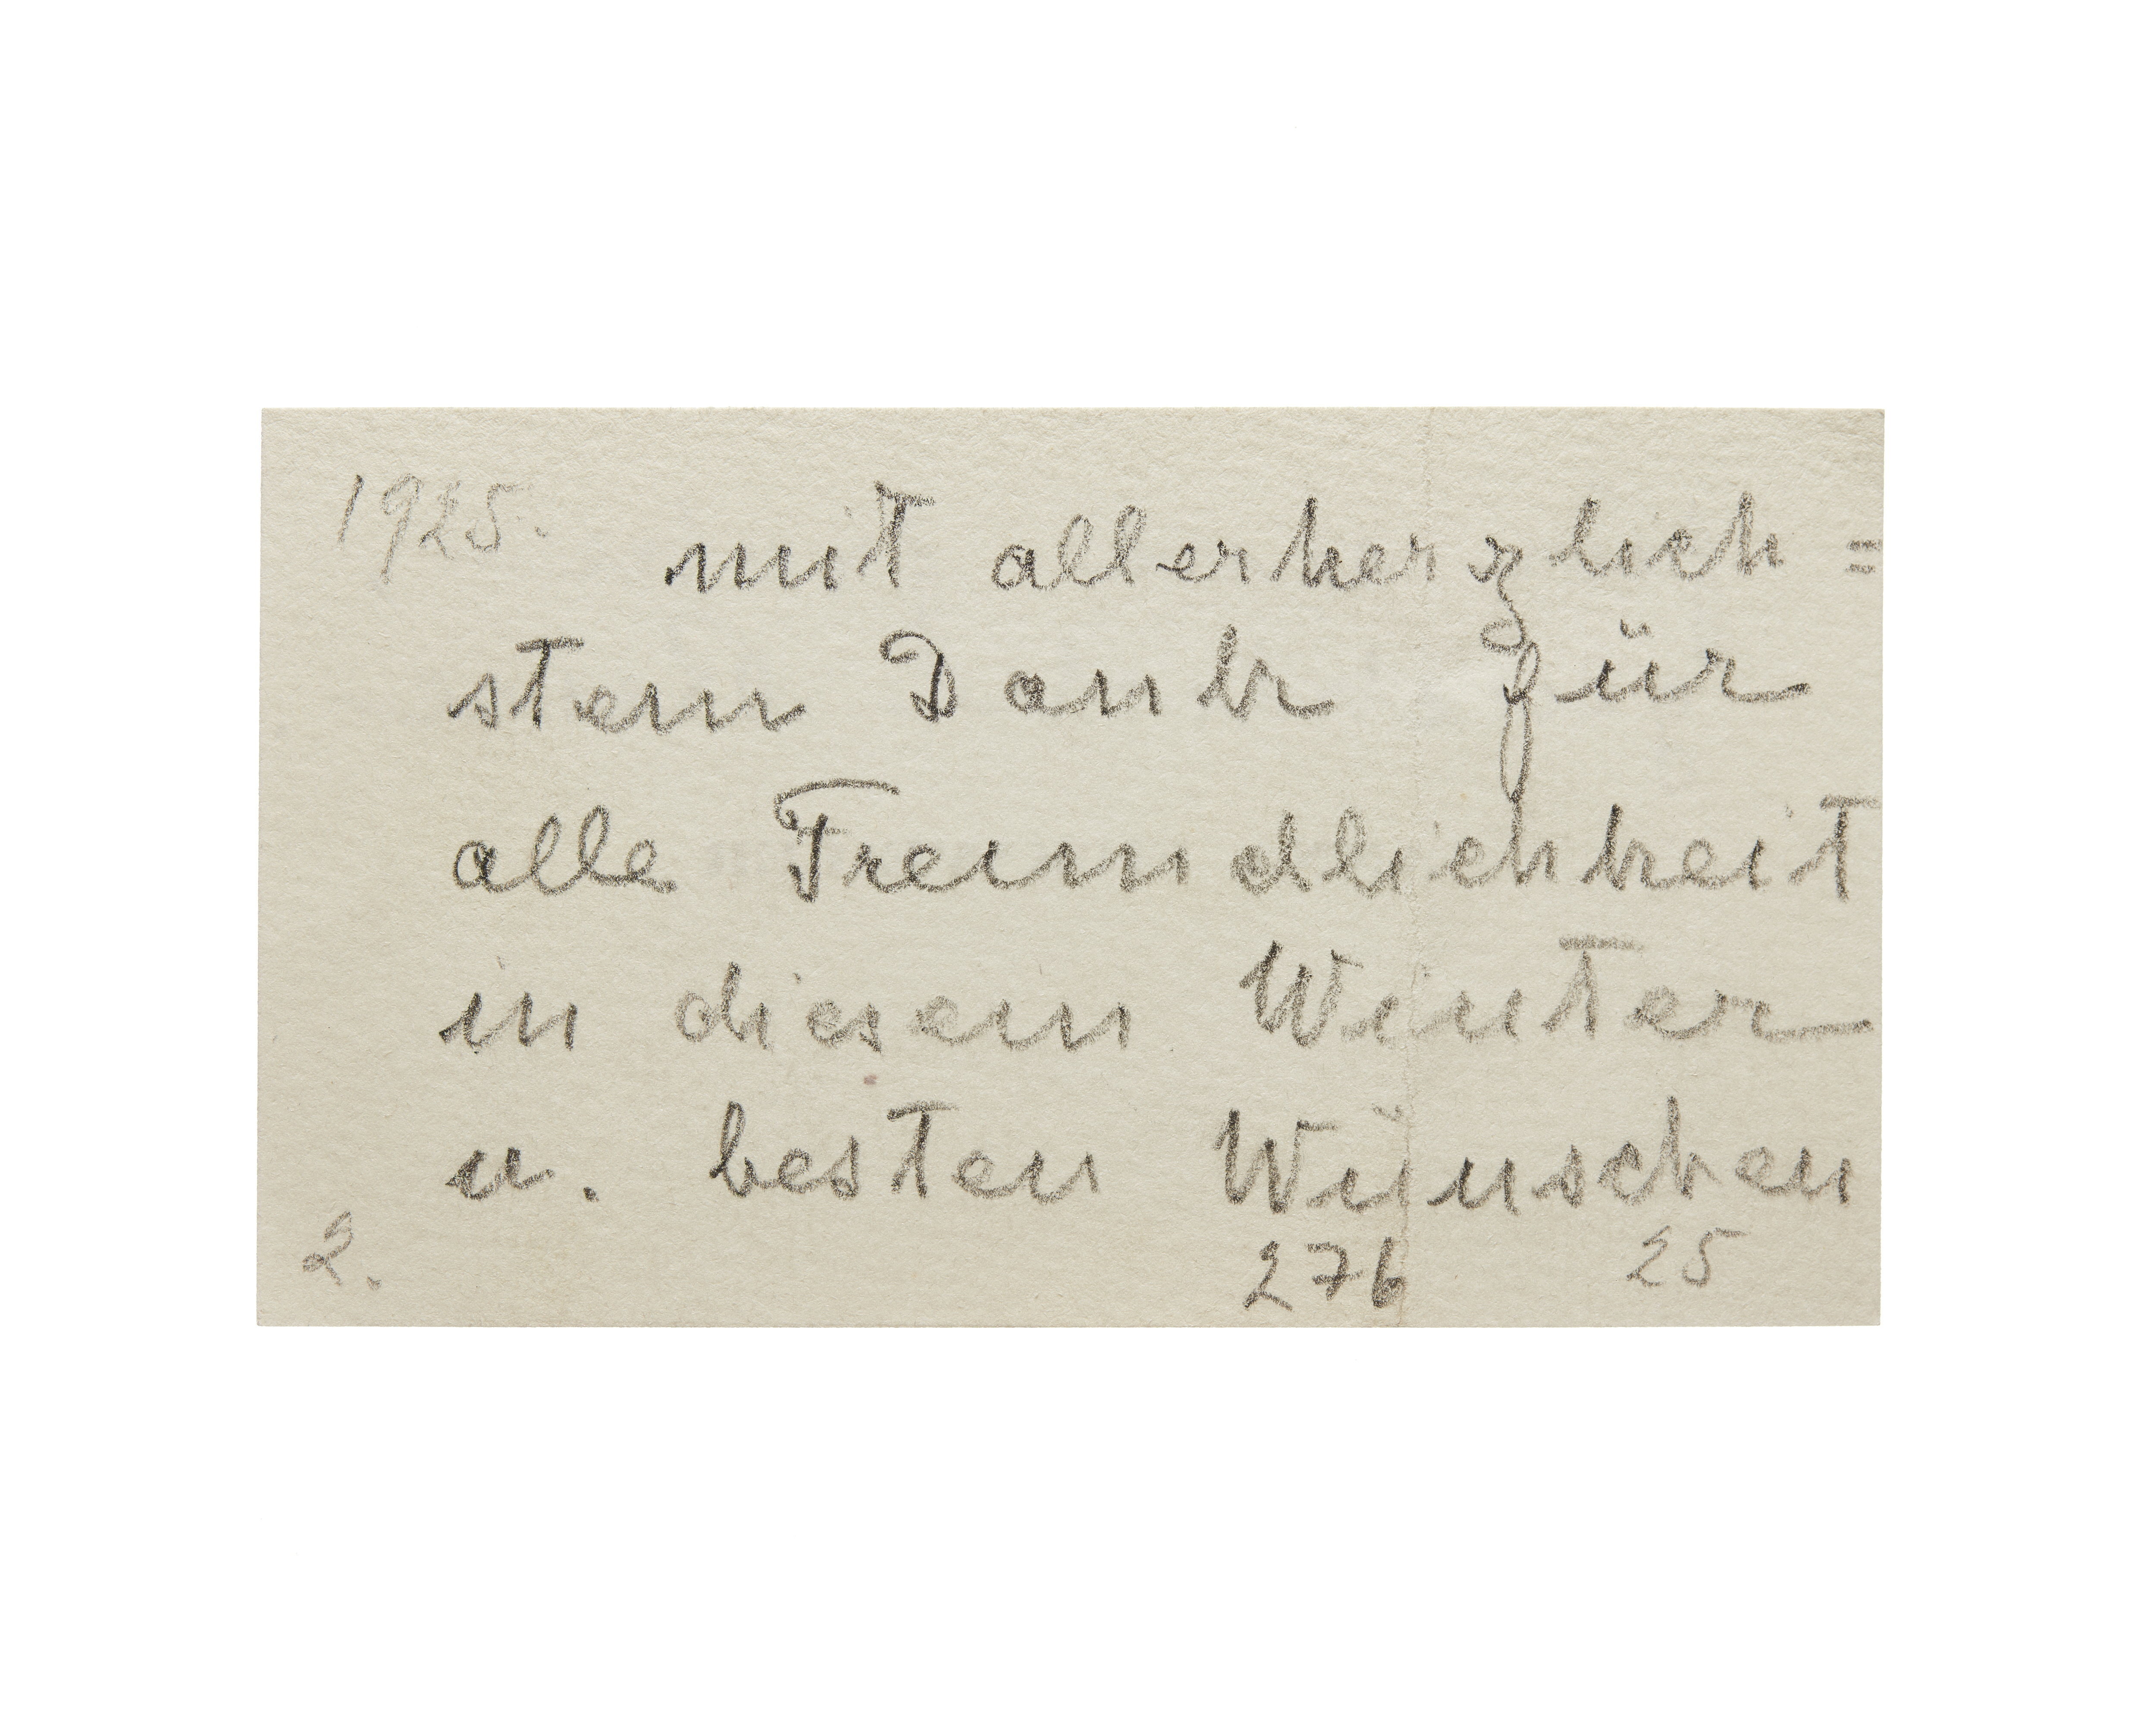 1925.
mit allerherzlich=
stem Dank für
alle Freundlichkeit
in diesem Winter
u. besten Wünschen
2. 276 25